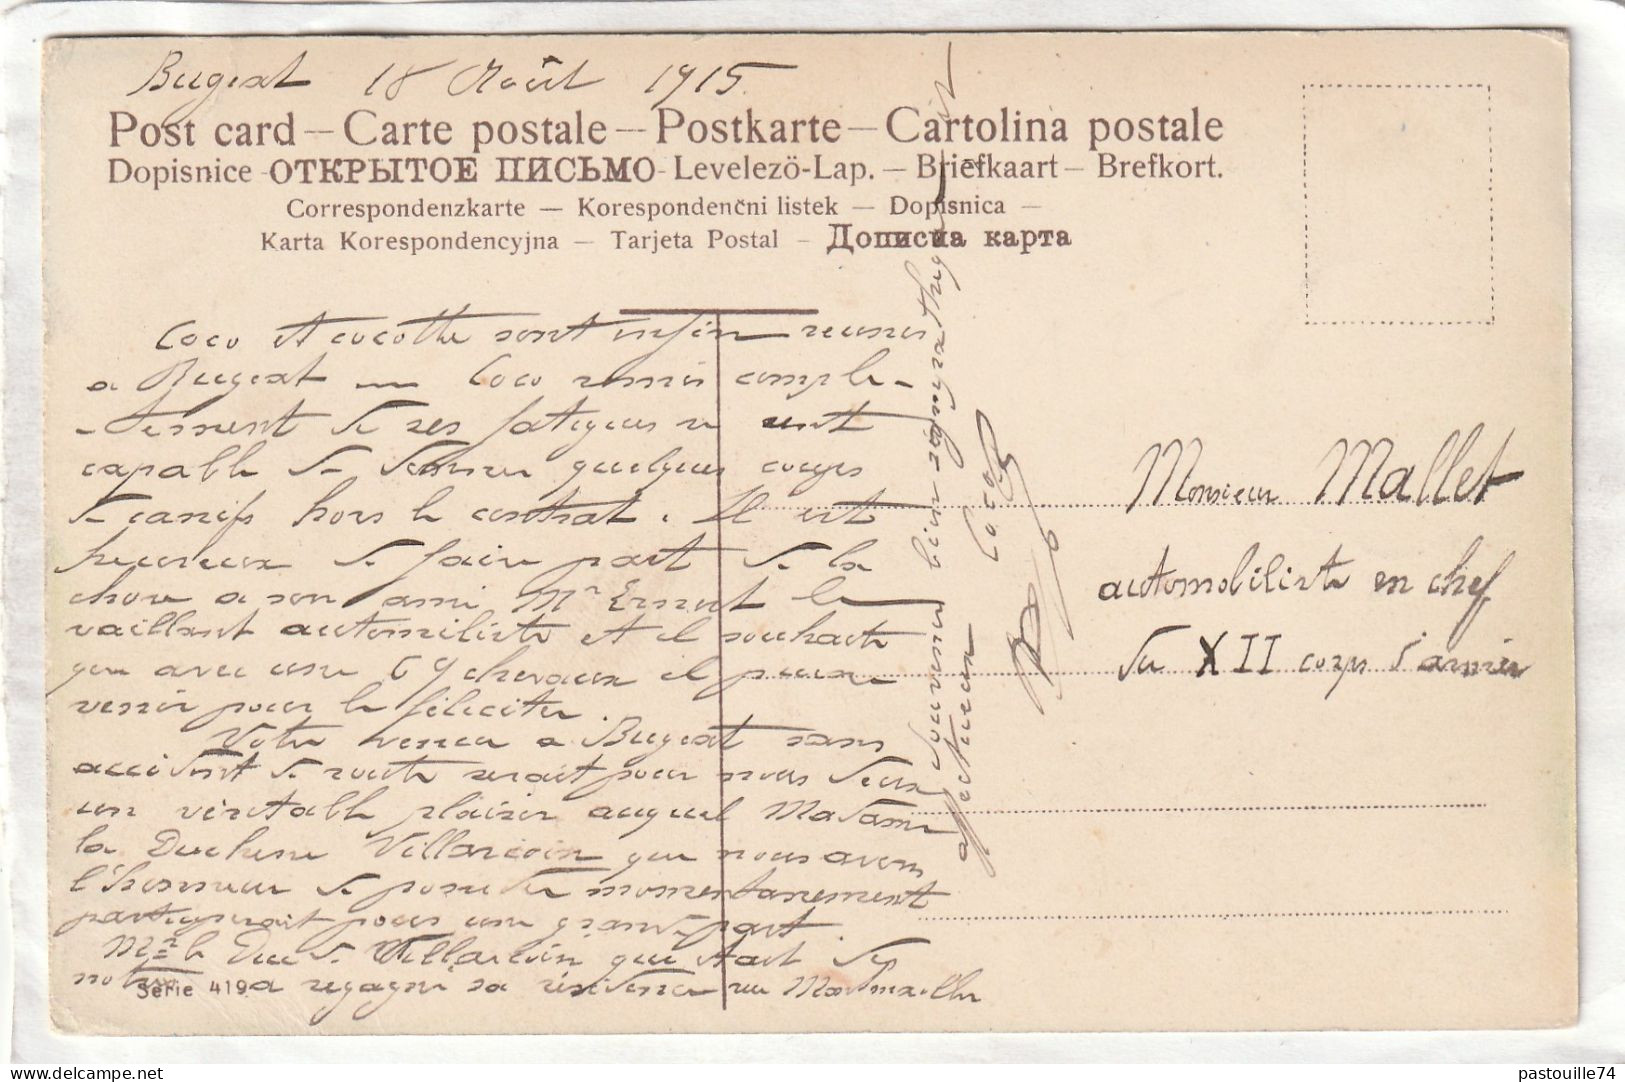 Bugeat 18 Août 1915
Post card – Carte postale – Postkarte – Cartolina postale
Dopisnice - ОТКРЫТОЕ ПИСЬМО - Levelezö-Lap. – Briefkaart – Brefkort.
Correspondenzkarte – Korespondenčni listek – Dopisnica –
Karta Korespondencyjna – Tarjeta Postal – Дописна карта
Coco et cocotte sont enfin reunis
a Bugeat — Coco remis comple-
-tement de ses fatigues est
capable de donner quelques coups
de canifs hors le contrat. Il est
heureux de faire part de la
chose a son ami Mr Ernest le
vaillant automiliste et il souhaite
que avec une 69 chevaux il puisse
venir pour le féliciter.
Votre venue a Bugeat sans
accident de route serait pour nous deux
un véritable plaisir auquel Madame
la Duchesse Villarcoin que nous avons
l'honneur de posseder momentanement
participerait pour une grande part.
Mr le Duc de Villarcoin qui etait des
notres a regagné sa résidence
Souvenir bien
affectueux Coco
Monsieur Mallet
automobiliste en chef
du XII corps d'armée
Serie 419
pastouille74